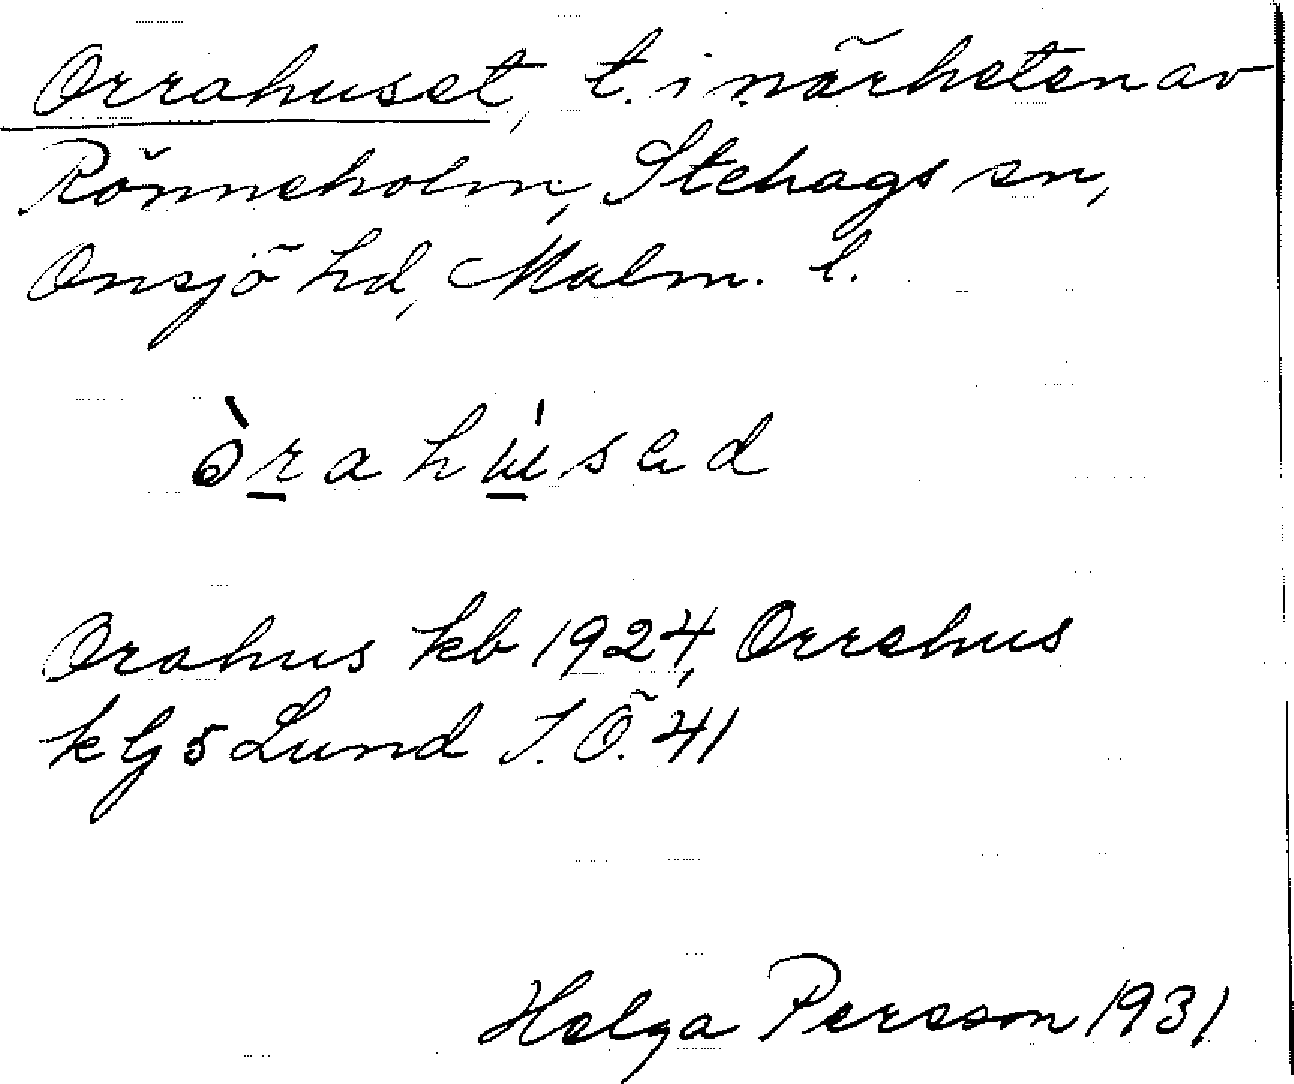 Orrahuset, t. i närheten av
Rönneholm, Stehags sn,
Onsjö hd, Malm. l.
òrahúsad
Orahus kb 1924, Orrehus
klj 5 Lund I. Ö. 41
Helga Persson 1931